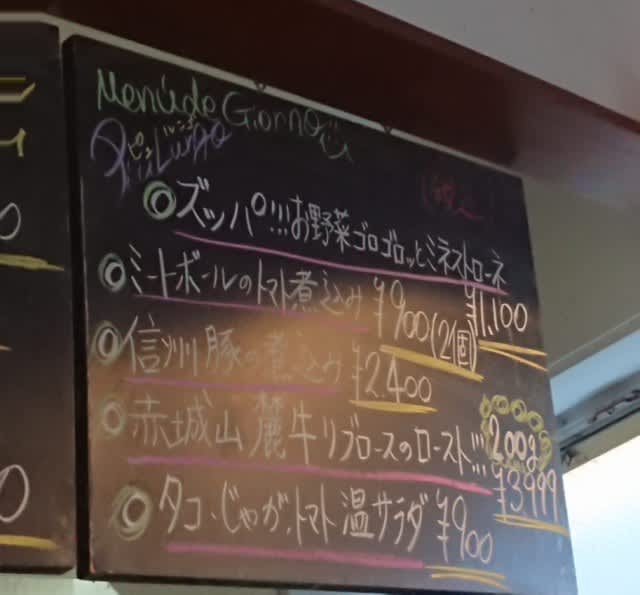 Menú de Giorno
Più Lungo
◎ズッパ!!!お野菜ゴロゴロッとミネストローネ
¥1,100
◎ミートボールのトマト煮込み ¥900(2個)
◎信州豚の煮込み ¥2.400
◎赤城山麓牛リブロースのロースト!!! 200g
¥3,999
◎タコ、じゃが、トマト温サラダ ¥900